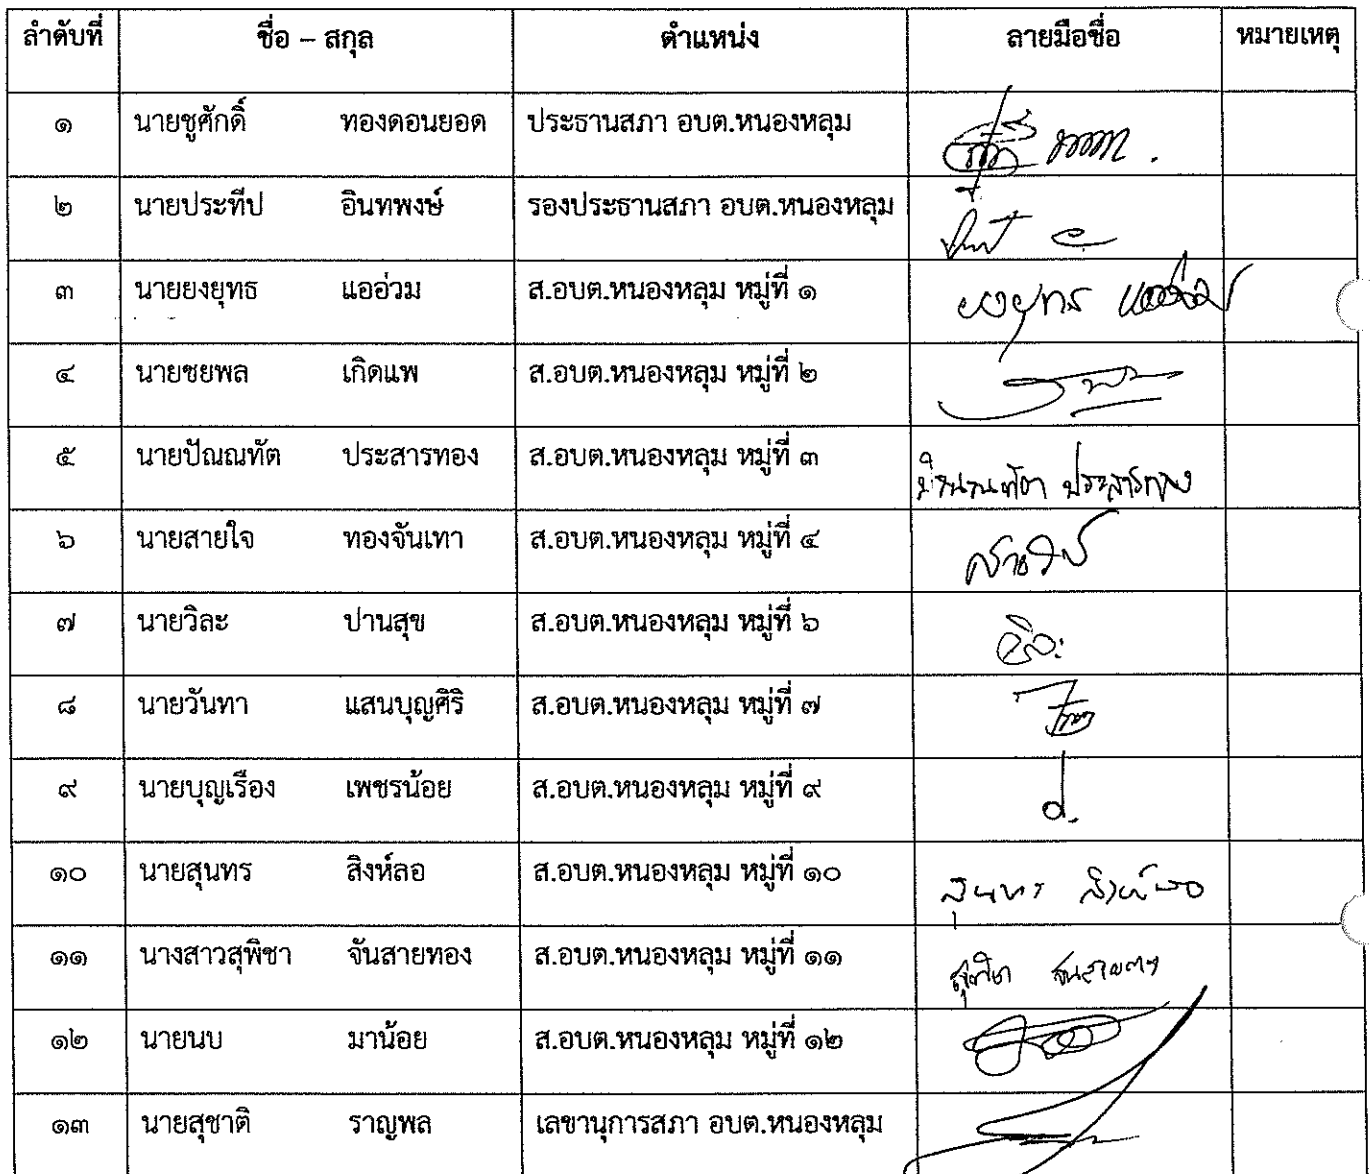 ลำดับที่ ชื่อ – สกุล ตำแหน่ง ลายมือชื่อ หมายเหตุ
๑ นายชูศักดิ์ ทองดอนยอด ประธานสภา อบต.หนองหลุม
๒ นายประทีป อินทพงษ์ รองประธานสภา อบต.หนองหลุม
๓ นายยงยุทธ แออ่วม ส.อบต.หนองหลุม หมู่ที่ ๑
๔ นายชยพล เกิดแพ ส.อบต.หนองหลุม หมู่ที่ ๒
๕ นายปัณณทัต ประสารทอง ส.อบต.หนองหลุม หมู่ที่ ๓ ปัณณทัต ประสารทอง
๖ นายสายใจ ทองจันเทา ส.อบต.หนองหลุม หมู่ที่ ๔ สายใจ
๗ นายวิละ ปานสุข ส.อบต.หนองหลุม หมู่ที่ ๖ วิละ
๘ นายวันทา แสนบุญศิริ ส.อบต.หนองหลุม หมู่ที่ ๗
๙ นายบุญเรือง เพชรน้อย ส.อบต.หนองหลุม หมู่ที่ ๙
๑๐ นายสุนทร สิงห์ลอ ส.อบต.หนองหลุม หมู่ที่ ๑๐ สุนทร สิงห์ลอ
๑๑ นางสาวสุพิชา จันสายทอง ส.อบต.หนองหลุม หมู่ที่ ๑๑ สุพิชา จันสายทอง
๑๒ นายนบ มาน้อย ส.อบต.หนองหลุม หมู่ที่ ๑๒
๑๓ นายสุชาติ ราญพล เลขานุการสภา อบต.หนองหลุม